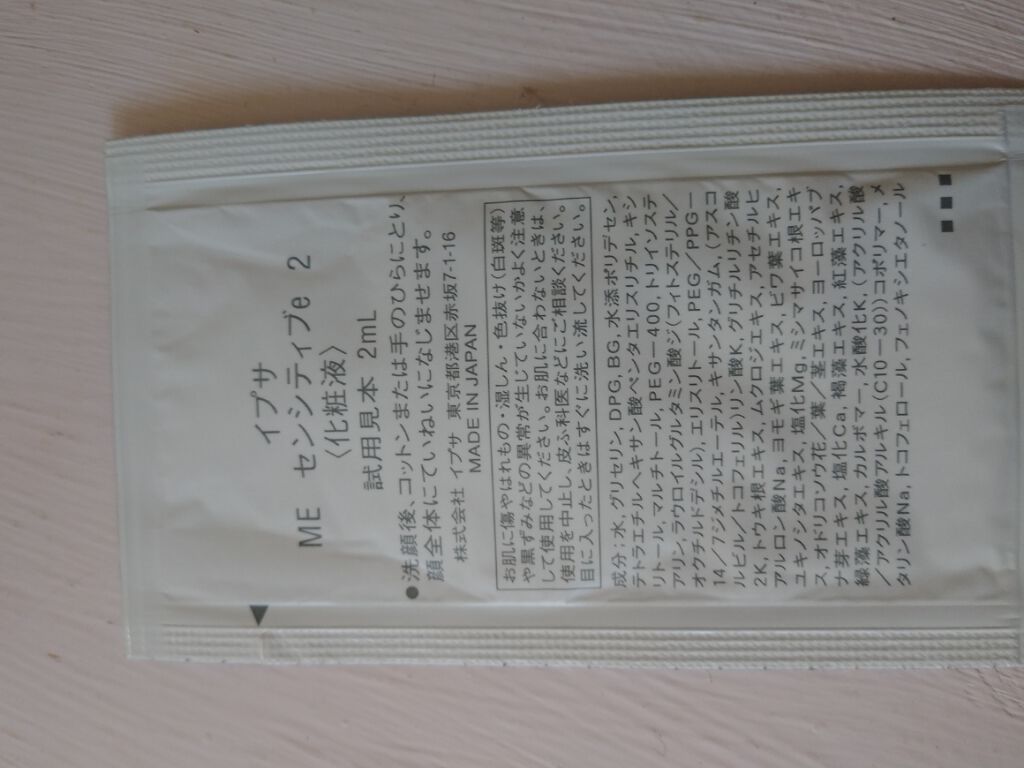 イプサ
ME センシティブe 2
〈化粧液〉
試用見本 2mL
●洗顔後、コットンまたは手のひらにとり、
顔全体にていねいになじませます。
株式会社 イプサ 東京都港区赤坂7-1-16
MADE IN JAPAN
お肌に傷やはれもの・湿しん・色抜け(白斑等)
や黒ずみなどの異常が生じていないかよく注意
して使用してください。お肌に合わないときは、
使用を中止し、皮ふ科医などにご相談ください。
目に入ったときはすぐに洗い流してください。
成分:水、グリセリン、DPG、BG、水添ポリデセン、
テトラエチルヘキサン酸ペンタエリスリチル、キシ
リトール、マルチトール、PEG-400、トリイソステ
アリン、ラウロイルグルタミン酸ジ(フィトステリル/
オクチルドデシル)、エリスリトール、PEG/PPG-
14/7ジメチルエーテル、キサンタンガム、(アスコ
ルビル/トコフェリル)リン酸K、グリチルリチン酸
2K、トウキ根エキス、ムクロジエキス、アセチルヒ
アルロン酸Na、ヨモギ葉エキス、ビワ葉エキス、
ユキノシタエキス、塩化Mg、ミシマサイコ根エキ
ス、オドリコソウ花/葉/茎エキス、ヨーロッパブ
ナ芽エキス、塩化Ca、褐藻エキス、紅藻エキス、
緑藻エキス、カルボマー、水酸化K、(アクリル酸
/アクリル酸アルキル(C10-30))コポリマー、メ
タリン酸Na、トコフェロール、フェノキシエタノール